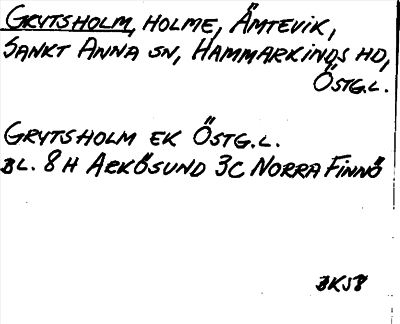 GRYTSHOLM, HOLME, ÄMTEVIK,
SANKT ANNA SN, HAMMARKINDS HD,
ÖSTG.L.
GRYTSHOLM EK ÖSTG.L.
BL. 8H ARKÖSUND 3C NORRA FINNÖ